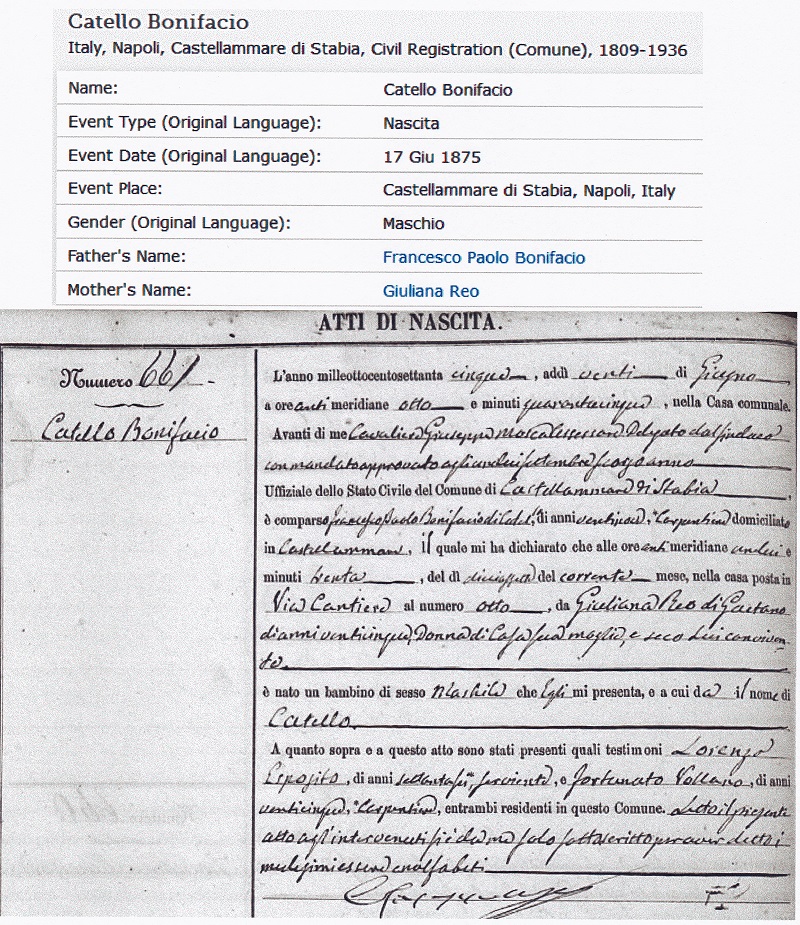 Catello Bonifacio
Italy, Napoli, Castellammare di Stabia, Civil Registration (Comune), 1809-1936
Name: Catello Bonifacio
Event Type (Original Language): Nascita
Event Date (Original Language): 17 Giu 1875
Event Place: Castellammare di Stabia, Napoli, Italy
Gender (Original Language): Maschio
Father's Name: Francesco Paolo Bonifacio
Mother's Name: Giuliana Reo
ATTI DI NASCITA.
Numero 661
Catello Bonifacio
L'anno milleottocentosettanta cinque, addì venti di Giugno
a ore anti meridiane otto e minuti quarantacinque, nella Casa comunale.
Avanti di me Cavaliere Giuseppe Mosca Assessore Delegato dal Sindaco
con mandato approvato agli undici settembre scorso anno
Uffiziale dello Stato Civile del Comune di Castellammare di Stabia,
è comparso Francesco Paolo Bonifacio di anni, Carpentiere domiciliato
in Castellammare, il quale mi ha dichiarato che alle ore anti meridiane undici e
minuti trenta, del dì diciassette del corrente mese, nella casa posta in
Via Cantiere al numero otto, da Giuliana Reo di Gaetano
di anni venticinque, Donna di Casa sua moglie, e seco lui conviven-
te.
è nato un bambino di sesso Maschile che Egli mi presenta, e a cui da il nome di
Catello
A quanto sopra e a questo atto sono stati presenti quali testimoni Lorenzo
Esposito, di anni, serviente, e Fortunato Vollano, di anni
venticinque, Carpentiere, entrambi residenti in questo Comune. Letto il presente
atto agl'intervenuti si è da me solo sottoscritto per aver detto i
medesimi essere analfabeti